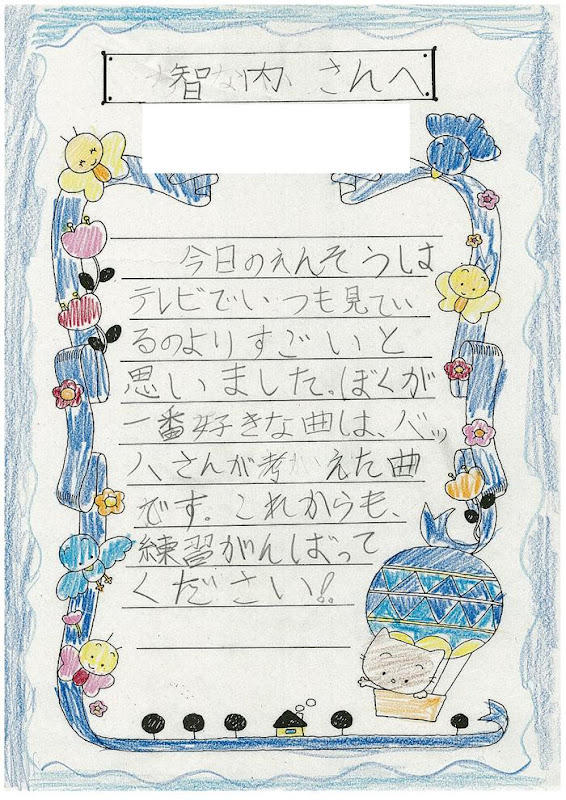 智内さんへ
今日のえんそうは
テレビでいつも見てい
るのよりすごいと
思いました。ぼくが
一番好きな曲は、バッ
ハさんが考えた曲
です。これからも、
練習がんばって
ください!!